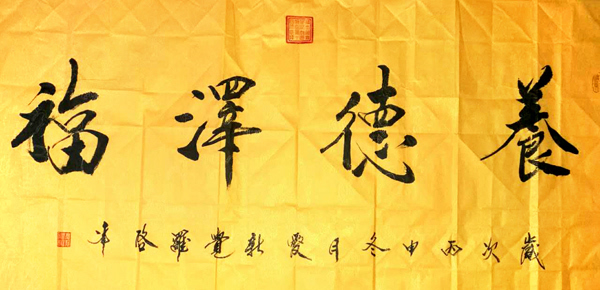 養德澤福
歲次丙申冬月愛新覺羅啓